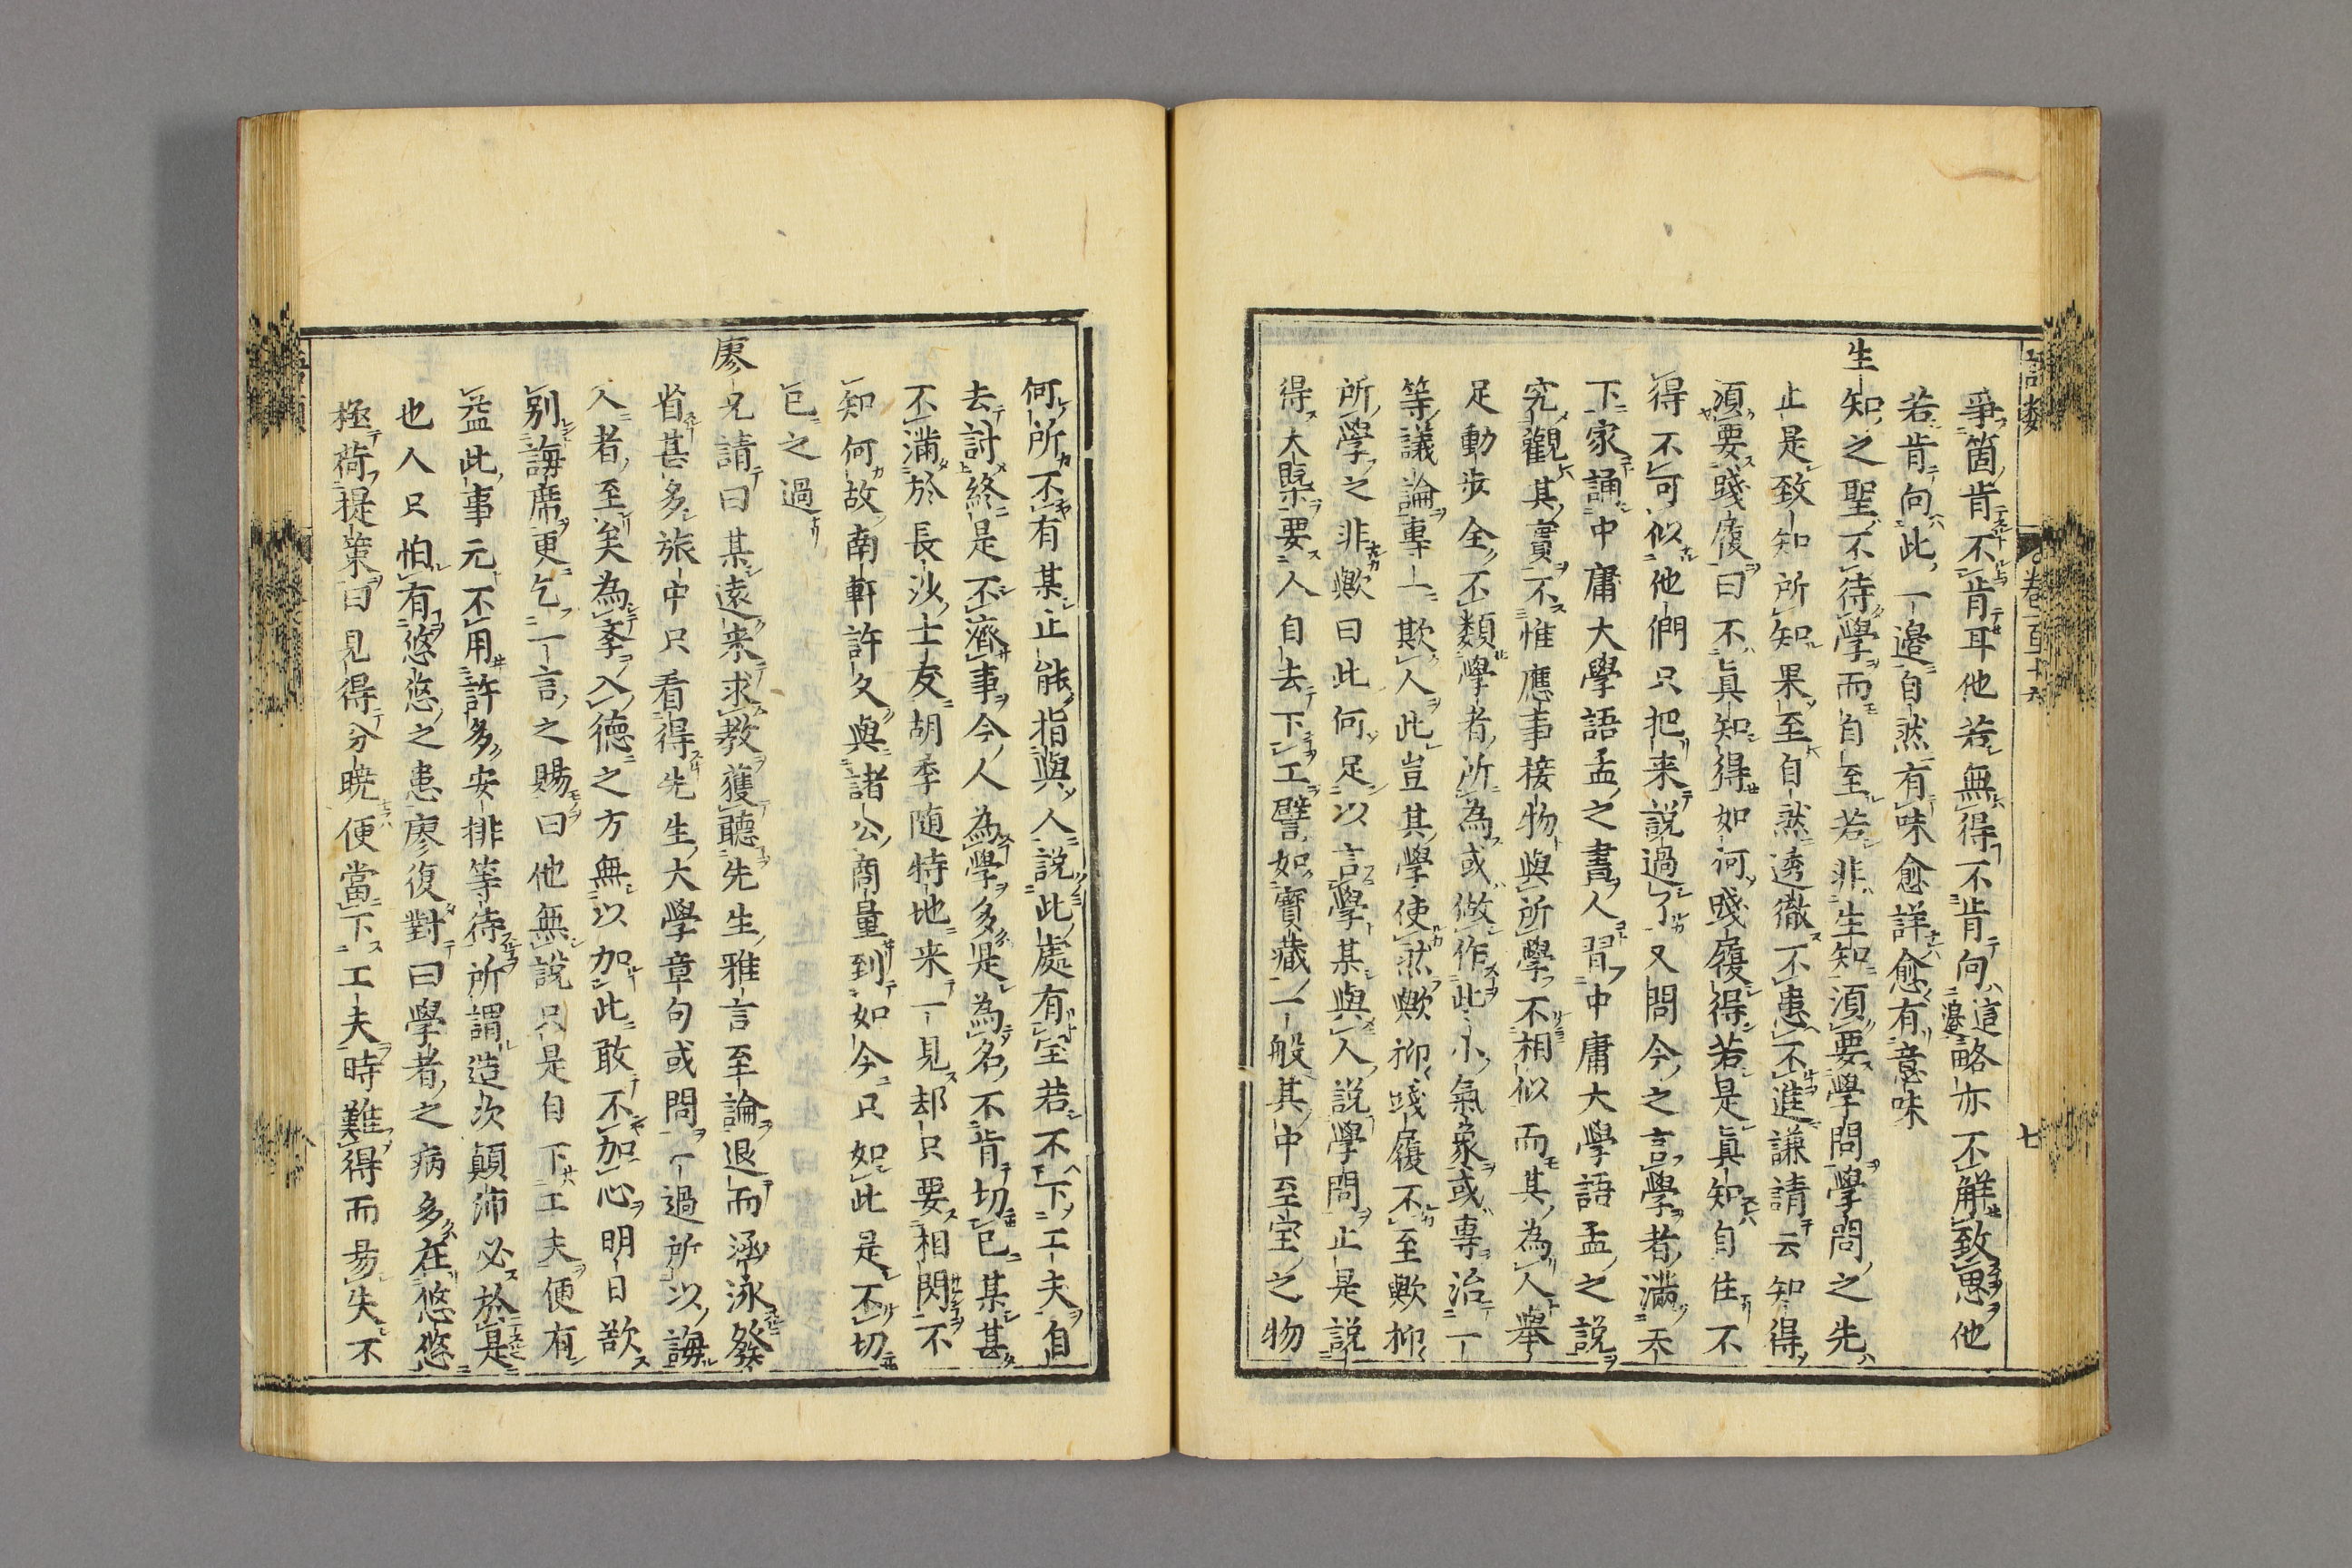 語類
卷一百十六
七
爭箇肯不肯耳他若無得不肯向這邊略亦不解致思他
若肯向此一邊自然有味愈詳愈有意味
生知之聖不待學而自至若非生知須要學問學問之先
止是致知所知果至自然透徹不患不進謙請云知得
須要踐履曰不真知得如何踐履得若是真知自住不
得不可似他們只把来說過了又問今之言學者滿天
下家誦中庸大學語孟之書人習中庸大學語孟之說
究觀其實不惟應事接物與所學不相似而其為人舉
足動步全不類學者所為或做作此小氣象或專治一
等議論專一欺人此豈其學使然歟抑踐履不至歟抑
所學之非歟曰此何足以言學某與人說學問止是說
得大槩要人自去下工譬如寳藏一般其中至宝之物
何所不有某止能指與人說此處有宝若不下工夫自
去討終是不濟事今人為學多是為名不肯切己某甚
不滿於長沙士友胡季随特地来一見却只要相閃不
知何故南軒許久與諸公商量到如今只如此是不切
已之過
廖兄請曰某遠来求教獲聽先生雅言至論退而涵泳發
省甚多旅中只看得先生大學章句或問一過所以誨
人者至矣為李入德之方無以加此敢不加心明日欲
別誨席更乞一言之賜曰他無說只是自下工夫便有
益此事元不用許多安排等待所謂造次顛沛必於是
也人只怕有悠悠之患廖復對曰學者之病多在悠悠
極荷提䇿曰見得分曉便當下工夫時難得而易失不